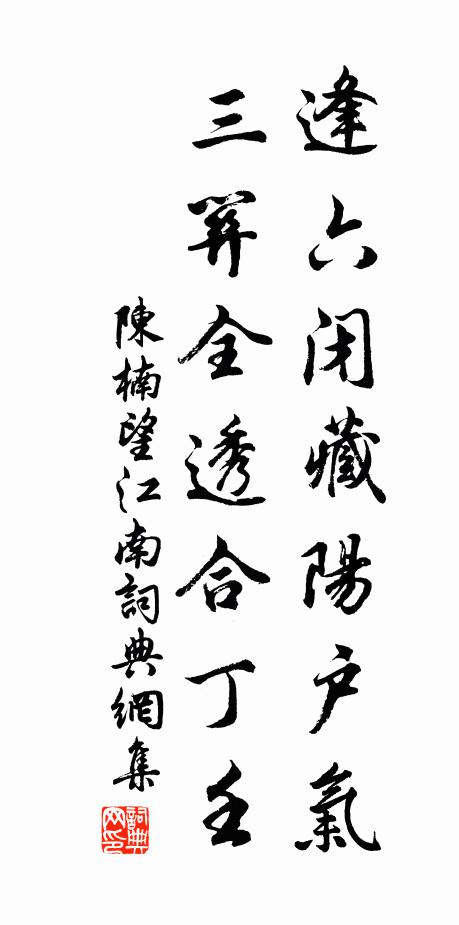 逢六閉藏陽户氣
三關全透合丁壬
陳楠望江南詞典網集
詞典
网印